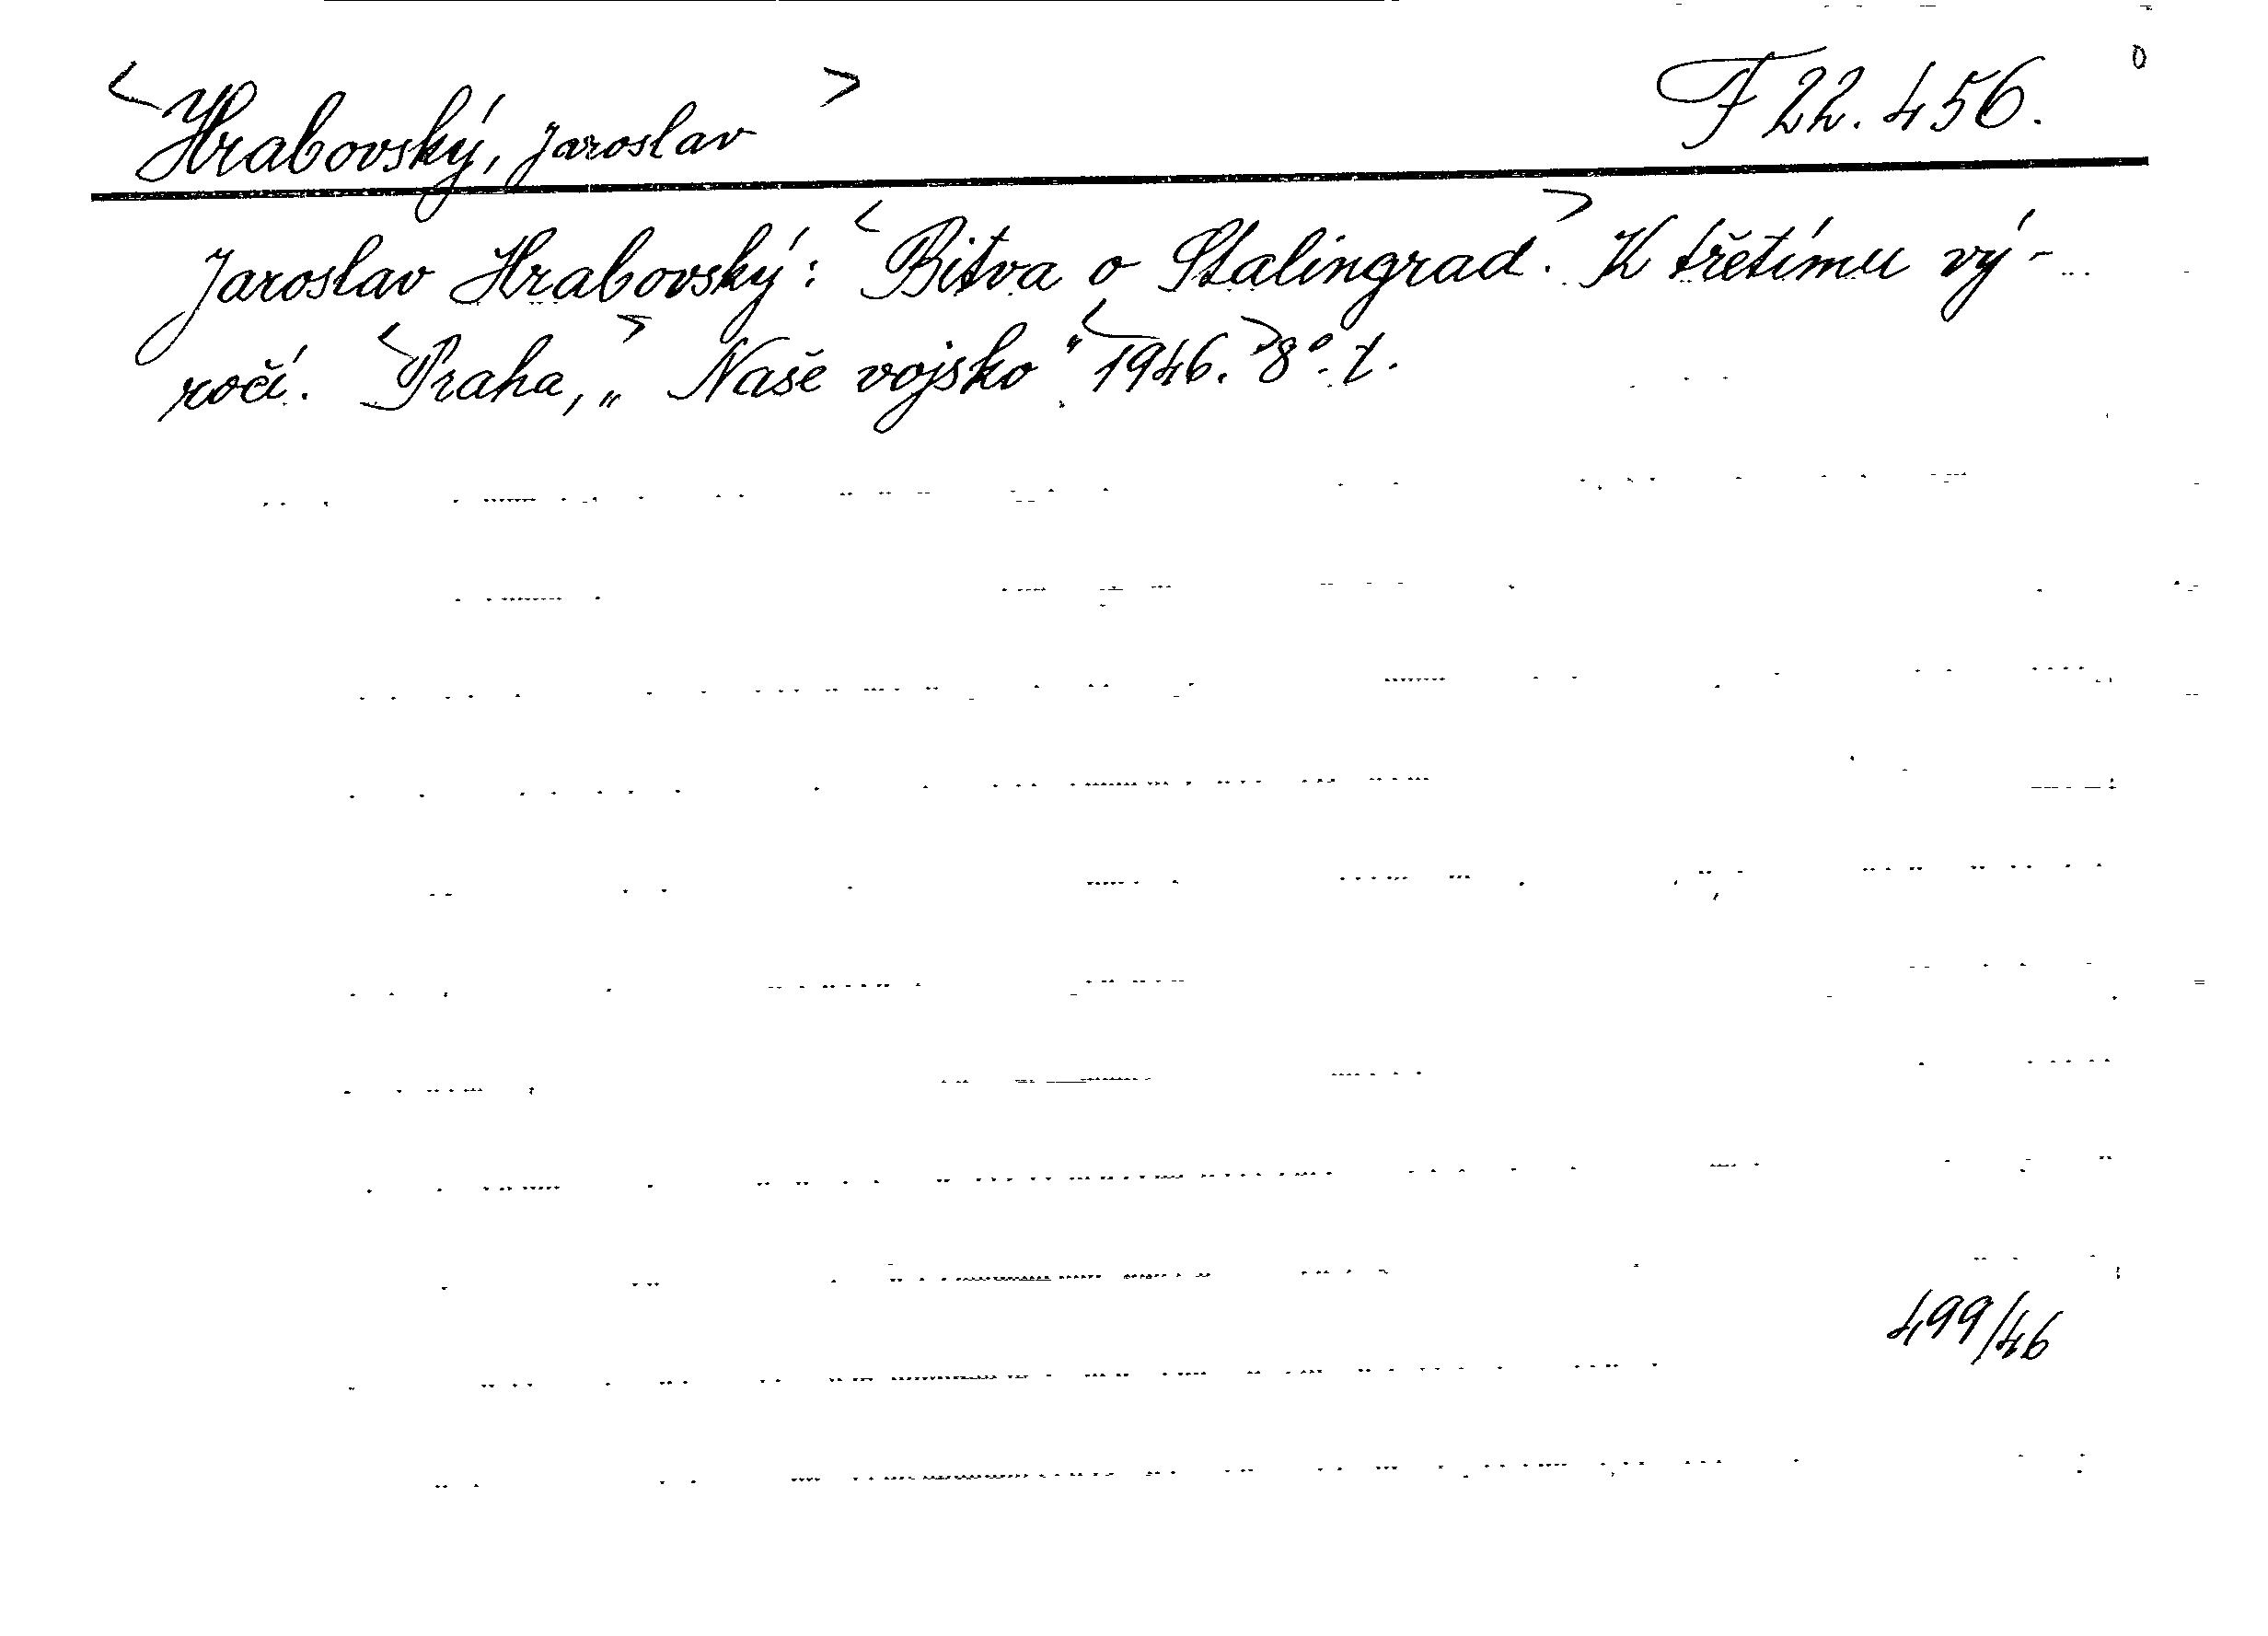 <Hrabovský, Jaroslav> F 22.456.
Jaroslav Hrabovský: <Bitva o Stalingrad.> K třetímu vý-
ročí. <Praha,> „Naše vojsko" <1946.> 8°.
499/46